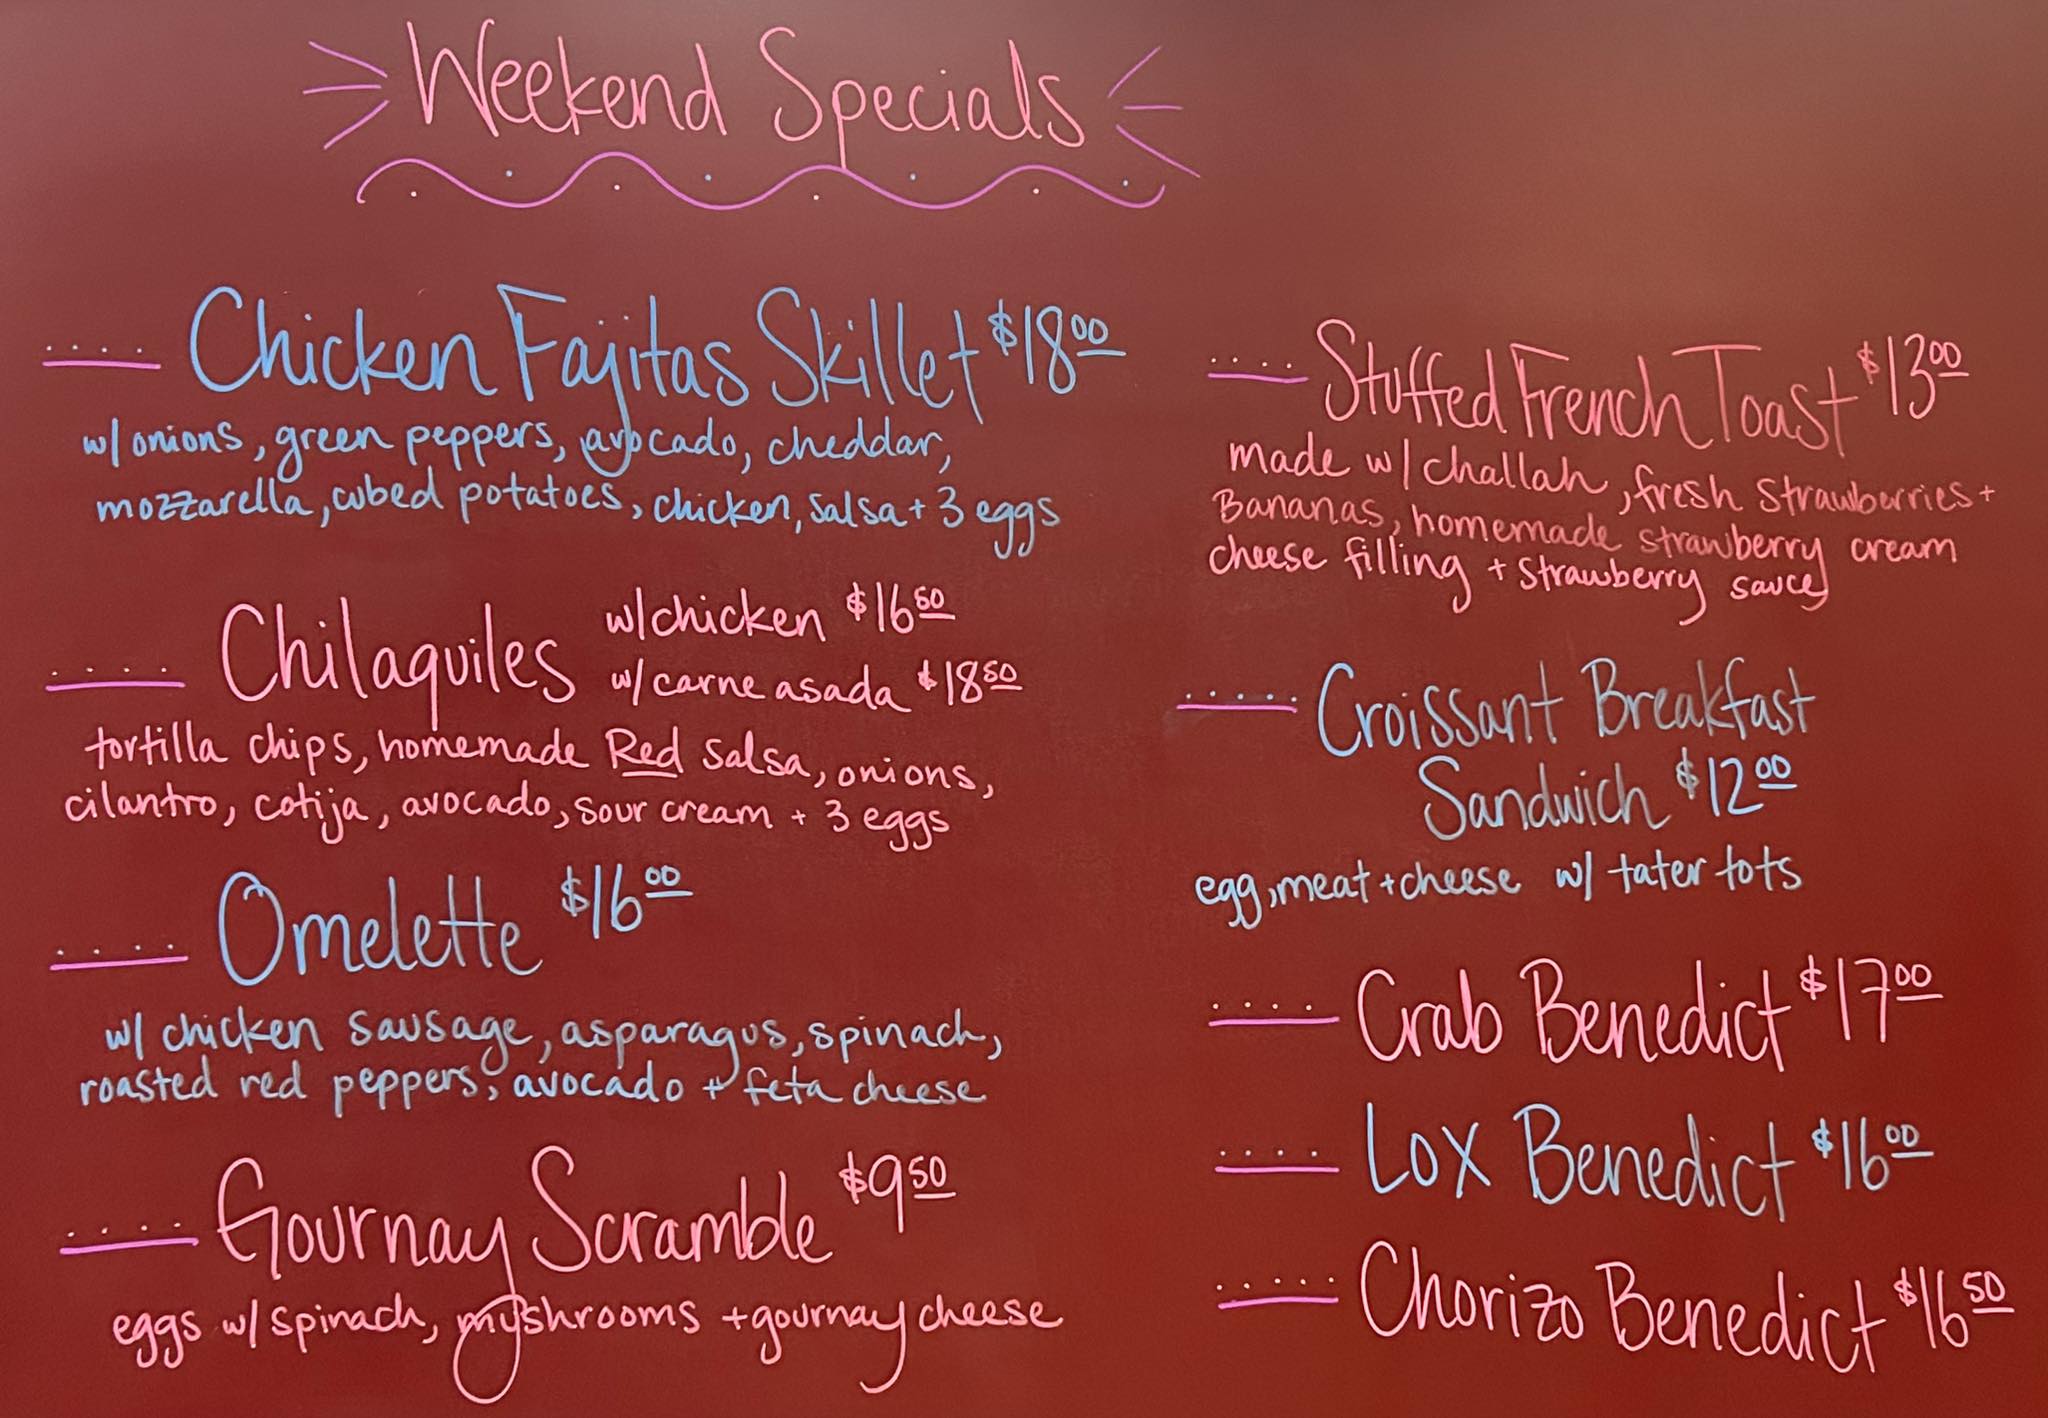 Weekend Specials
Chicken Fajitas Skillet $18.00
w/ onions, green peppers, avocado, cheddar,
mozzarella, cubed potatoes, chicken, salsa + 3 eggs
Chilaquiles w/chicken $16.50
w/ carne asada $18.50
tortilla chips, homemade Red salsa, onions,
cilantro, cotija, avocado, sour cream + 3 eggs
Omelette $16.00
w/ chicken sausage, asparagus, spinach,
roasted red peppers, avocado + feta cheese
Gournay Scramble $9.50
eggs w/ spinach, mushrooms + gournay cheese
Stuffed French Toast $13.00
made w/ challah, fresh strawberries +
Bananas, homemade strawberry cream
cheese filling + strawberry sauce
Croissant Breakfast
Sandwich $12.00
egg, meat + cheese w/ tater tots
Crab Benedict $17.00
Lox Benedict $16.00
Chorizo Benedict $16.50